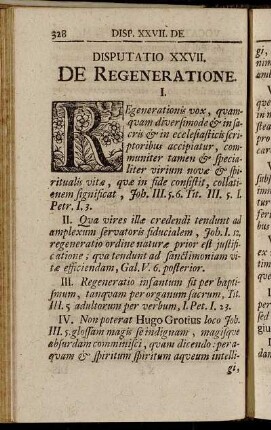 328 DISP. XXVII. DE
DISPUTATIO XXVII.
DE REGENERATIONE.
I.
REgenerationis vox, quam-
quam diversimode & in sa-
cris & in ecclesiasticis scri-
ptoribus accipiatur, com-
muniter tamen & specia-
liter virium novæ & spi-
ritualis vitæ, quæ in fide consistit, collati-
onem significat, Joh. III. 5. 6. Tit. III. 5. I.
Petr. I. 3.
II. Qua vires illæ credendi tendunt ad
amplexum servatoris fiducialem, Joh. I. 12.
regeneratio ordine naturæ prior est justifi-
catione; qua tendunt ad sanctimoniam vi-
tæ efficiendam, Gal. V. 6. posterior.
III. Regeneratio infantum fit per bapti-
smum, tanquam per organum sacrum, Tit.
III. 5 adultorum per verbum, I. Pet. I. 23.
IV. Non poterat Hugo Grotius loco Joh.
III. 5. glossam magis se indignam, magisque
absurdam comminisci, quam dicendo: per a-
quam & spiritum spiritum aqveum intelli-
gi,